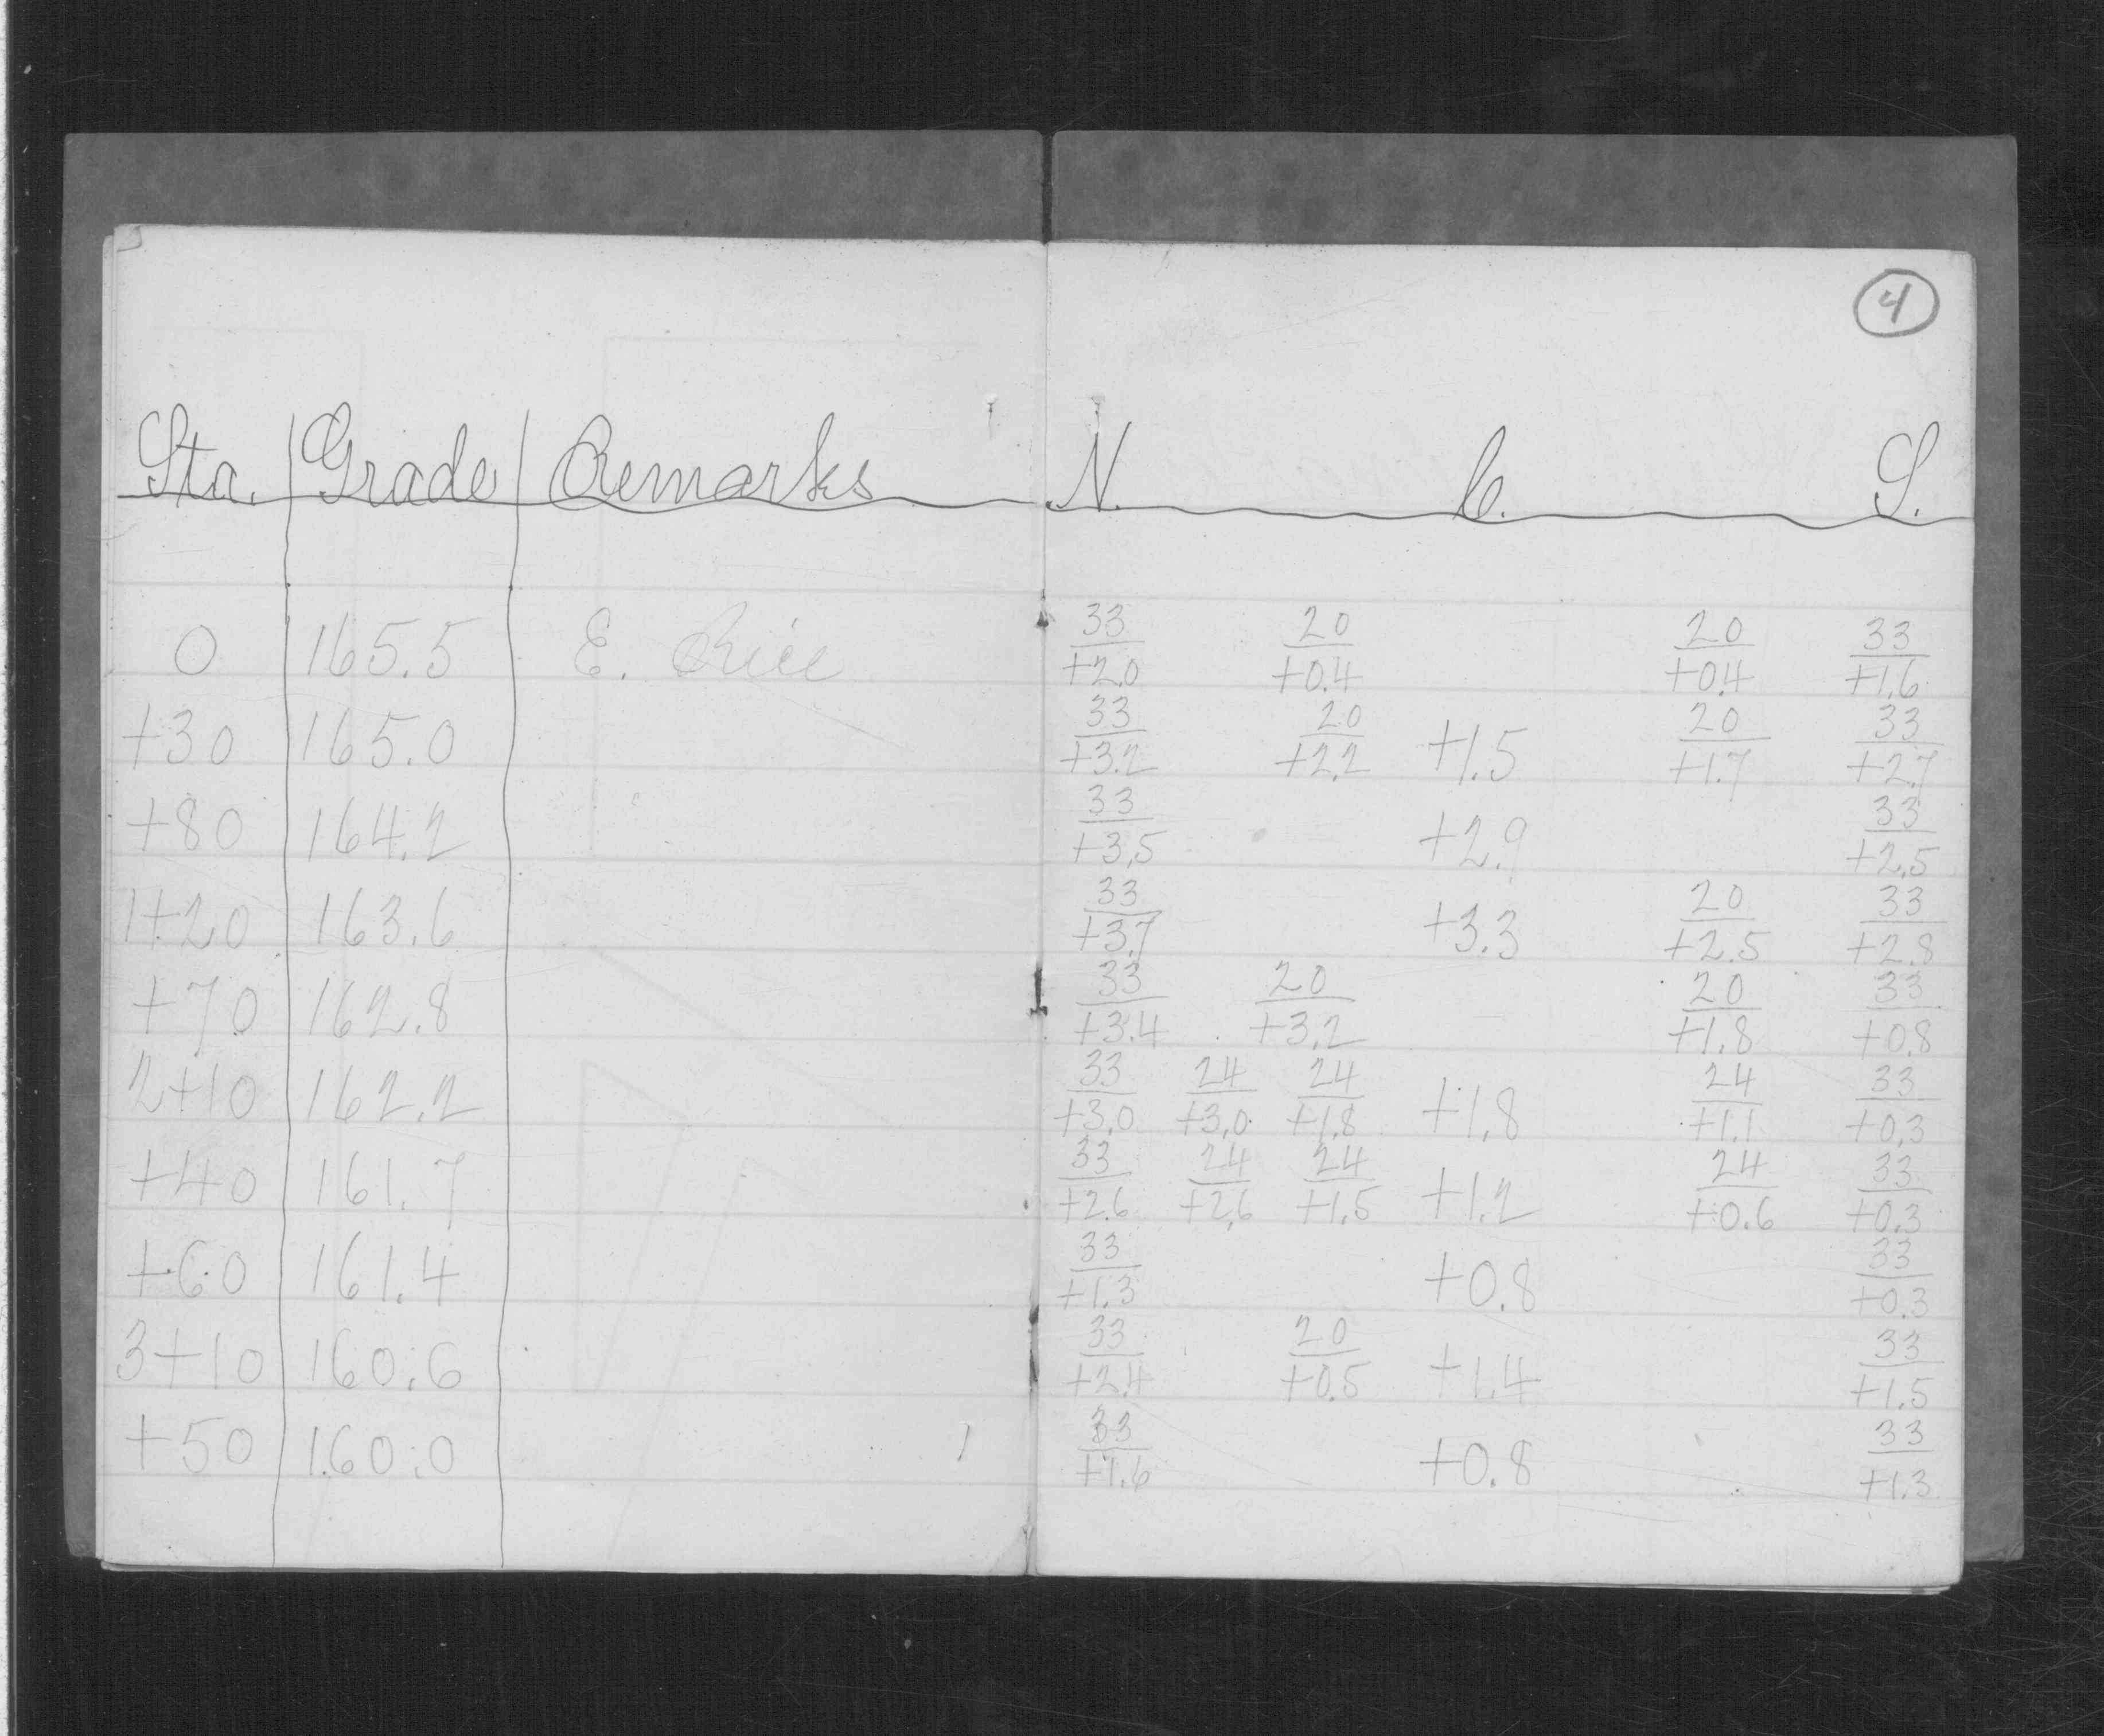 4
Sta. Grade Remarks N. C. S.
0 165.5 E. Rice 33/+2.0 20/+0.4 20/+0.4 33/+1.6
+30 165.0 33/+3.2 20/+2.2 +1.5 20/+1.7 33/+2.7
+80 164.2 33/+3.5 +2.9 33/+2.5
1+20 163.6 33/+3.7 +3.3 20/+2.5 33/+2.8
+70 162.8 33/+3.4 20/+3.2 20/+1.8 33/+0.8
2+10 162.2 33/+3.0 24/+3.0 24/+1.8 +1.8 24/+1.1 33/+0.3
+40 161.7 33/+2.6 24/+2.6 24/+1.5 +1.2 24/+0.6 33/+0.3
+60 161.4 33/+1.3 +0.8 33/+0.3
3+10 160.6 33/+2.4 20/+0.5 +1.4 33/+1.5
+50 160.0 33/+1.6 +0.8 33/+1.3